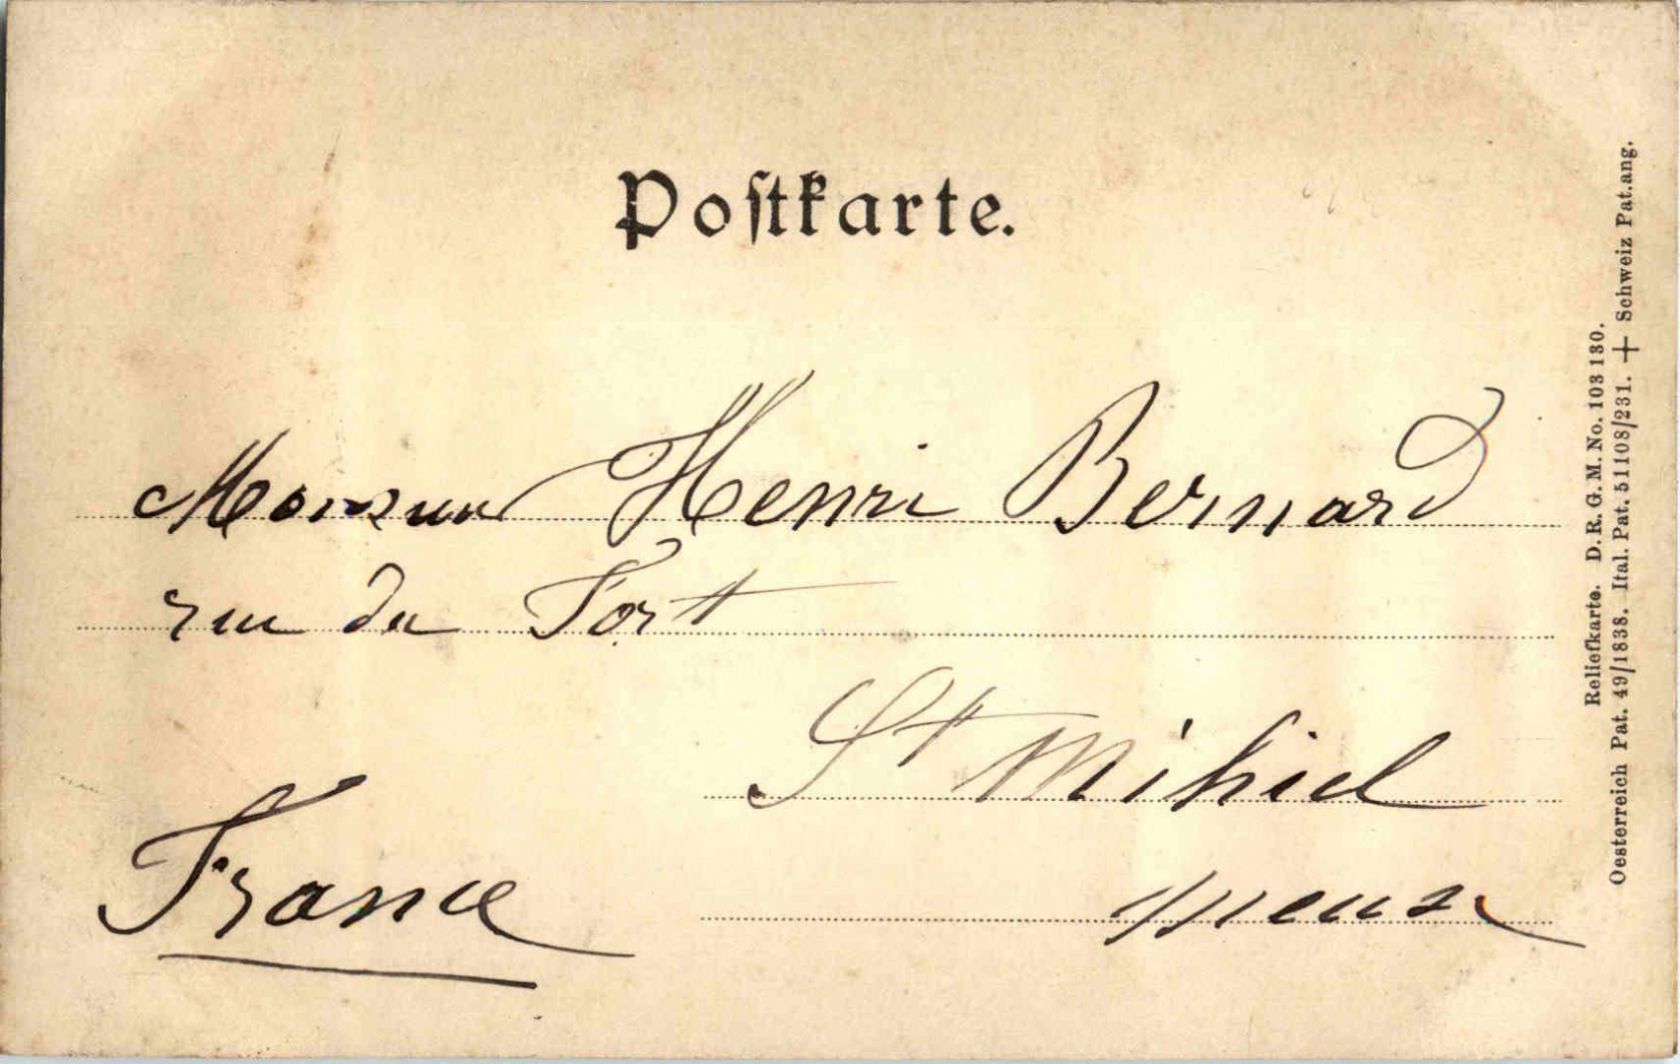 Poſtkarte.
Monsieur Henri Bernard
rue du Fort
St Mihiel
Meuse
France
Reliefkarte. D. R. G. M. No. 103 180.
Oesterreich Pat. 49/1838. Ital. Pat. 51108/231. + Schweiz Pat. ang.